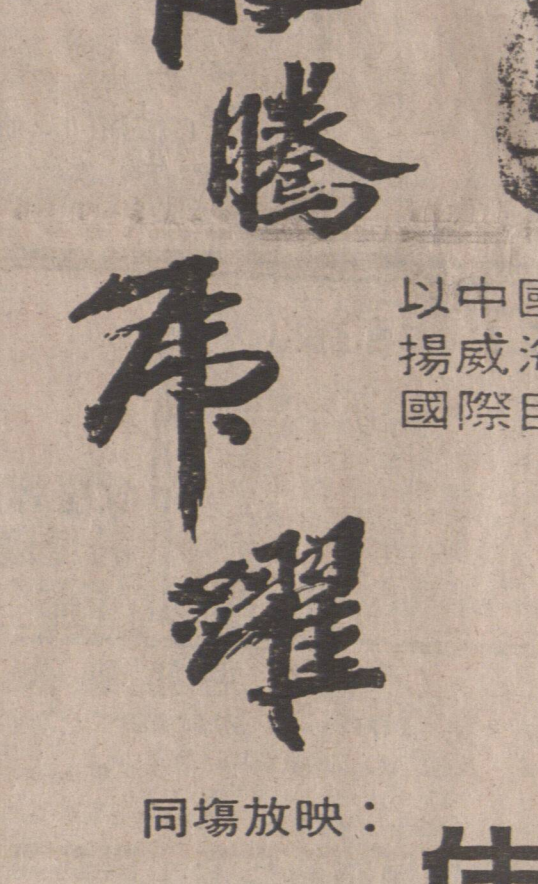 騰
虎
躍
以中國
揚威海
國際
同塲放映：